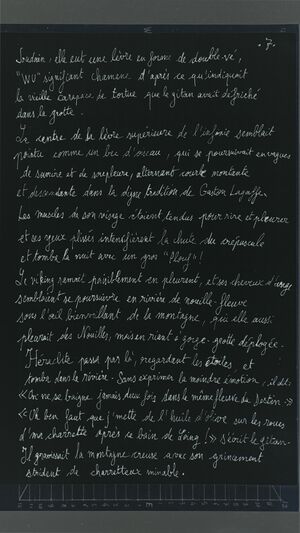 .7.
Soudain, elle eut une lèvre en forme de double-vé,
"WU" signifiant chamane d'après ce qu'indiquait
la vieille carapace de tortue que le gitan avait défriché
dans la grotte.
Le centre de la lèvre supérieure de l'infante semblait
pointu comme un bec d'oiseau, qui se poursuivait en vagues
de sourire et de soupleur, alternant courbe montante
et descendante dans la digne tradition de Gaston Lagaffe.
Les muscles de son visage étaient tendus pour rire et pleurer
et ses yeux plissés intensifièrent la chute du crépuscule
et tomba la nuit avec un gros "Plouf"!
Le viking ramait péniblement en pleurant, et ses cheveux d'
semblaient se poursuivre en rivière de nouille-fleuve
sous l'œil bienveillant de la montagne, qui elle aussi
pleurait des Nouilles, mais en riant à gorge-grotte déployée.
Héraclite passa par là, regardant les étoiles et
tomba dans la rivière. Sans exprimer la moindre émotion, il dit:
«On ne se baigne jamais deux fois dans le même fleuve du
«Oh ben faut que j'mette de l'huile d'olive sur les roues
d'ma charrette après ce bain de !» s'écrit le gitan.
Il gravissait la montagne creuse avec son grincement
strident de charretteux minable.